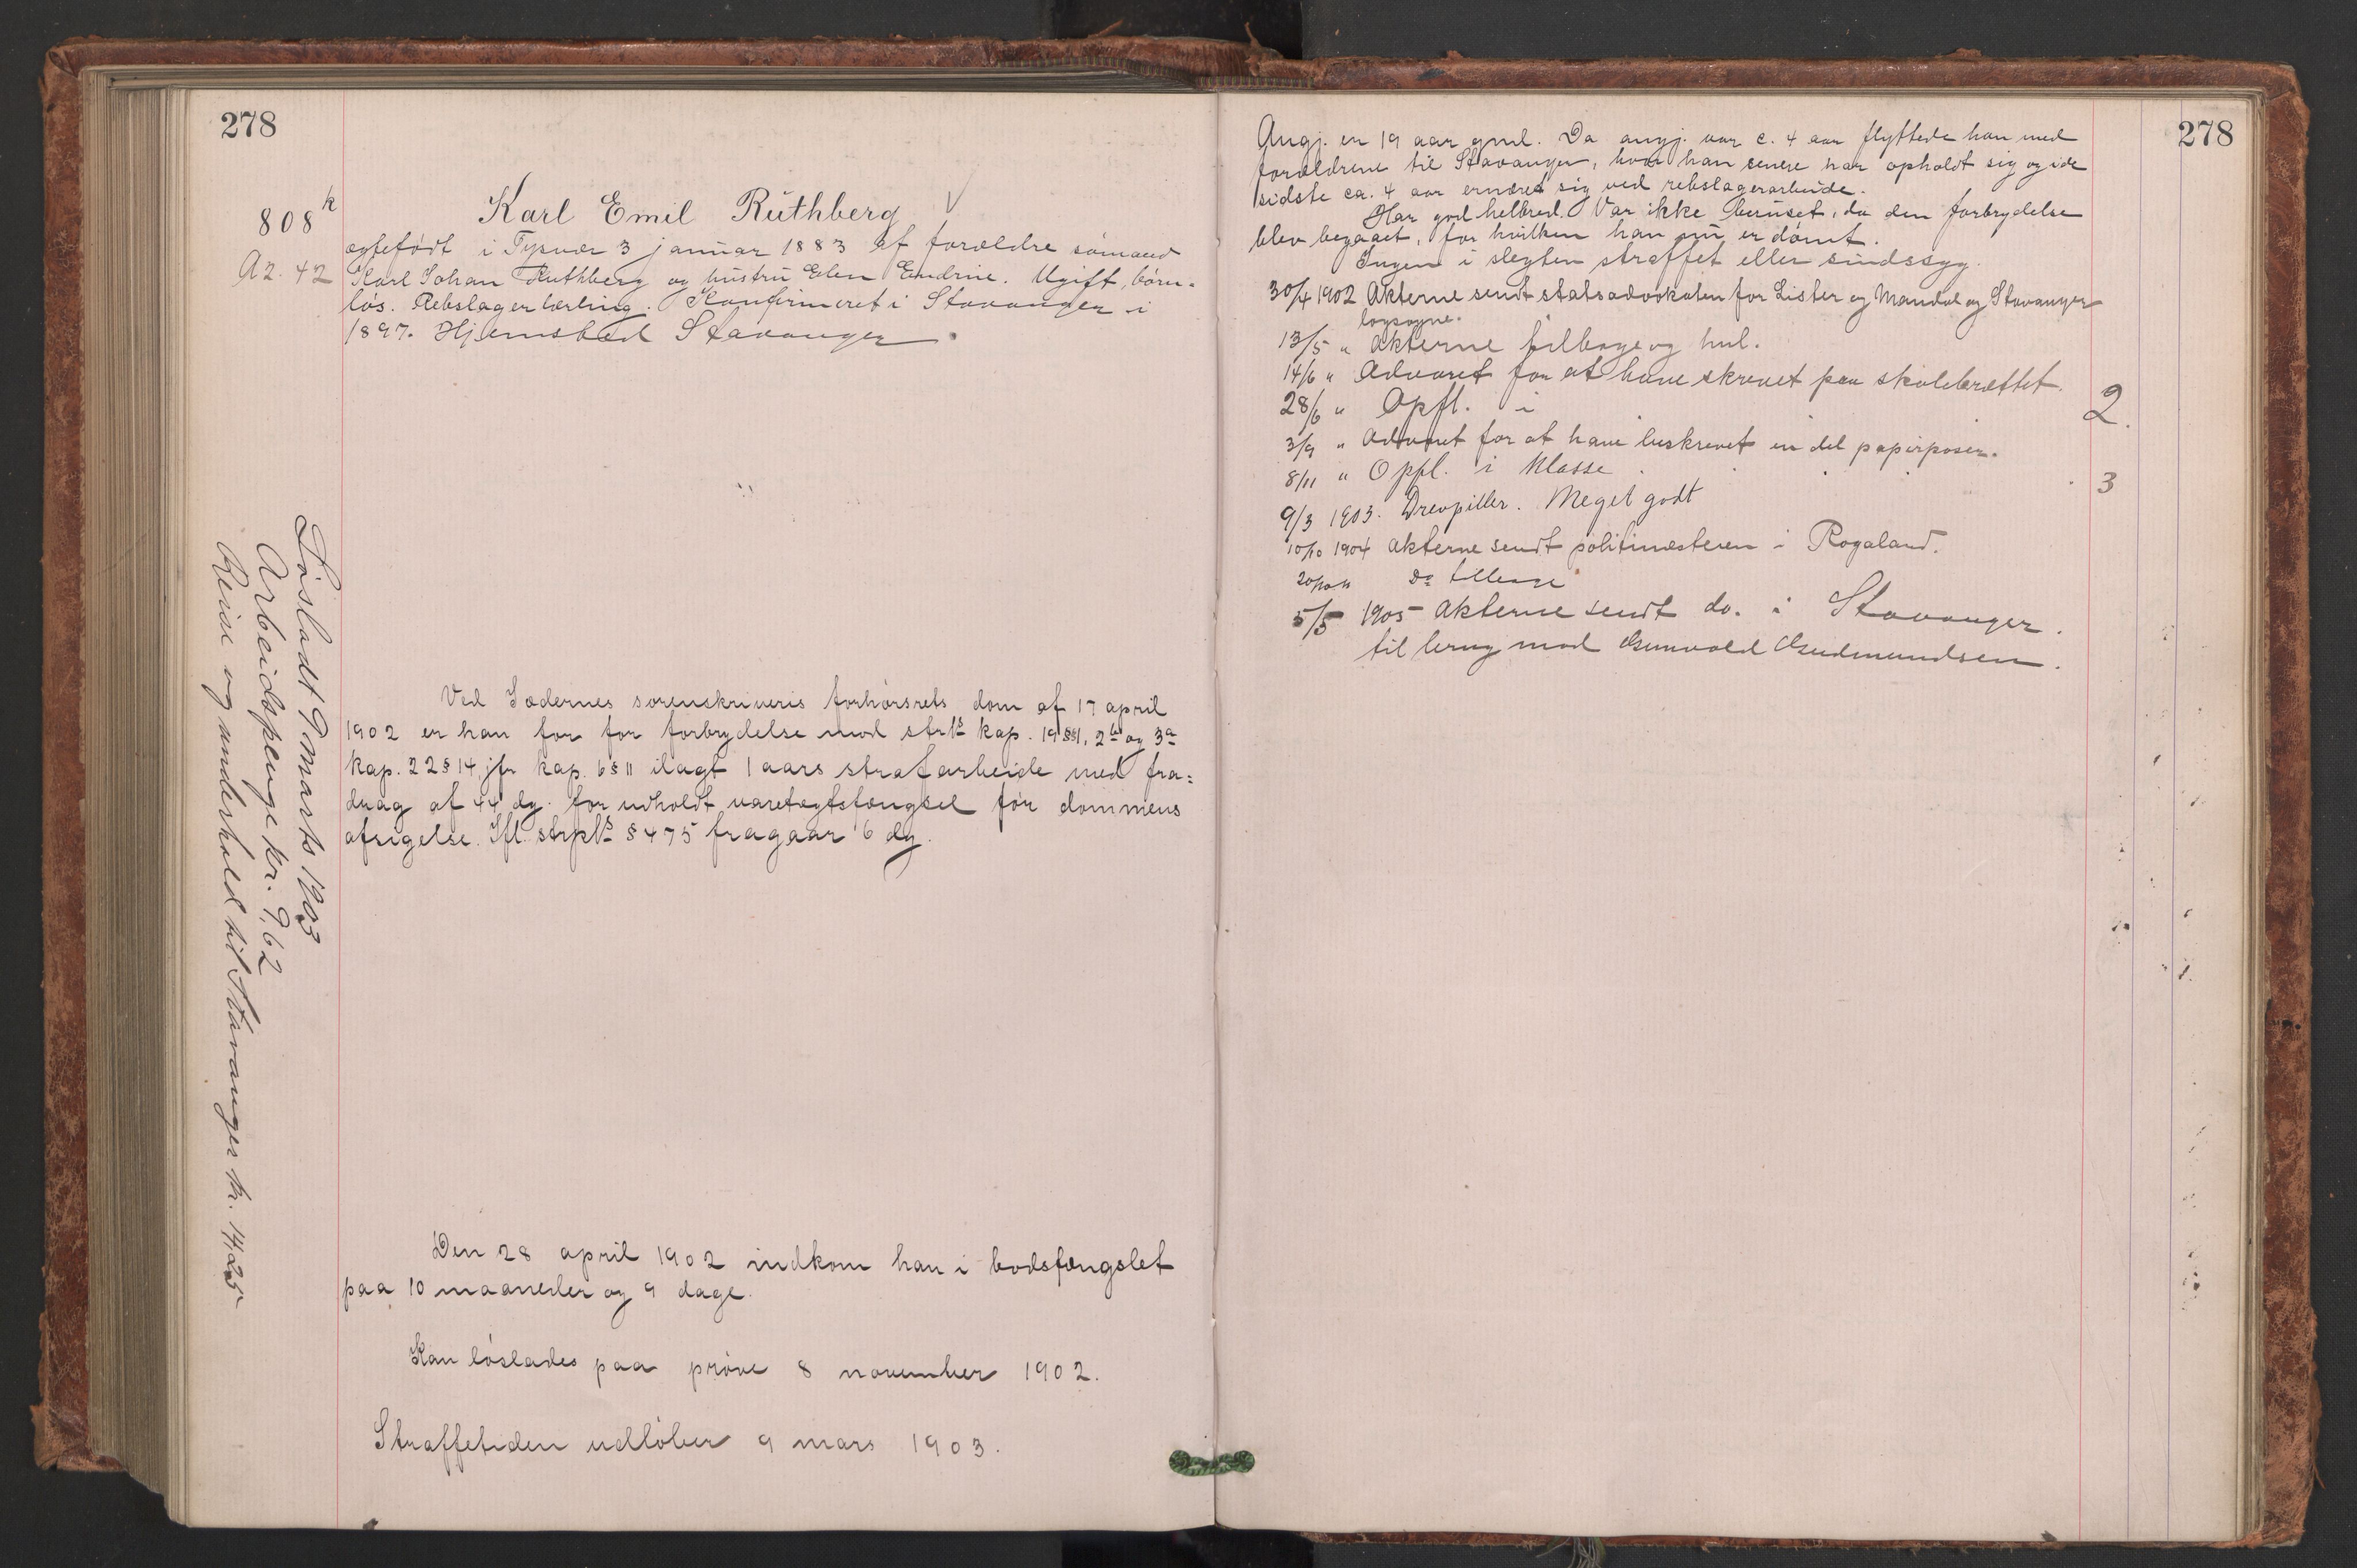 278
808 k
A2. 42
Karl Emil Ruthberg
ægtefødt i Tysvær 3 januar 1883 af forældre sømand
Karl Johan Ruthberg og hustru Elen Endrine. Ugift, børn-
løs. Rebslagerlærling. Konfirmeret i Stavanger i
1897. Hjemsted Stavanger.
Ved Jædernes sorenskriveris forhørsrets dom af 17 april
1902 er han for for forbrydelse mod strls kap. 19 §§1, 2b og 3a
kap. 22 § 14, jfr kap. 6 § 11 ilagt 1 aars strafarbeide med fra-
drag af 44 dg. for udholdt varetægtsfængsel før dommens
afsigelse. Ifl. strpls § 475 fragaar 6 dg.
Den 28 april 1902 indkom han i bodsfængslet
paa 10 maaneder og 9 dage.
Kan løslades paa prøve 8 november 1902.
Straffetiden udløber 9 mars 1903.
Løsladt 9 marts 1903
Arbeidspenge kr. 9,62
Reise og underhold til Stavanger kr. 14,25
278
Angj. er 19 aar gml. Da angj. var c. 4 aar flyttede han med
forældrene til Stavanger, hvor han senere har opholdt sig og i de
sidste ca. 4 aar ernæret sig ved rebslagerarbeide.
Har god helbred. Var ikke beruset, da den forbrydelse
blev begaaet, for hvilken han nu er dømt.
Ingen i slegten straffet eller sindssyg.
30/4 1902 Akterne sendt statsadvokaten for Lister og Mandal og Stavanger
lagsogne.
13/5 " Akterne tilbage og hul.
14/6 " Advaret for at have skrevet paa skolebrættet.
28/6 " Opfl. i 2.
3/9 " Advaret for at have beskrevet en del papirposer.
8/11 " Opfl. i klasse 3
9/3 1903. Drevpiller. Meget godt
10/10 1904 Akterne sendt politimesteren i Rogaland.
20/10 " Do tilbage
5/5 1905 Akterne sendt do. i Stavanger.
til brug mod Gunvald Gudmundsen.